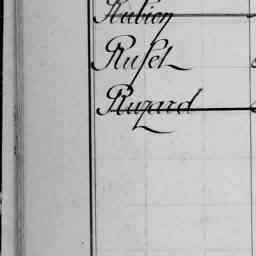 Rubion
Rusel
Ruzard